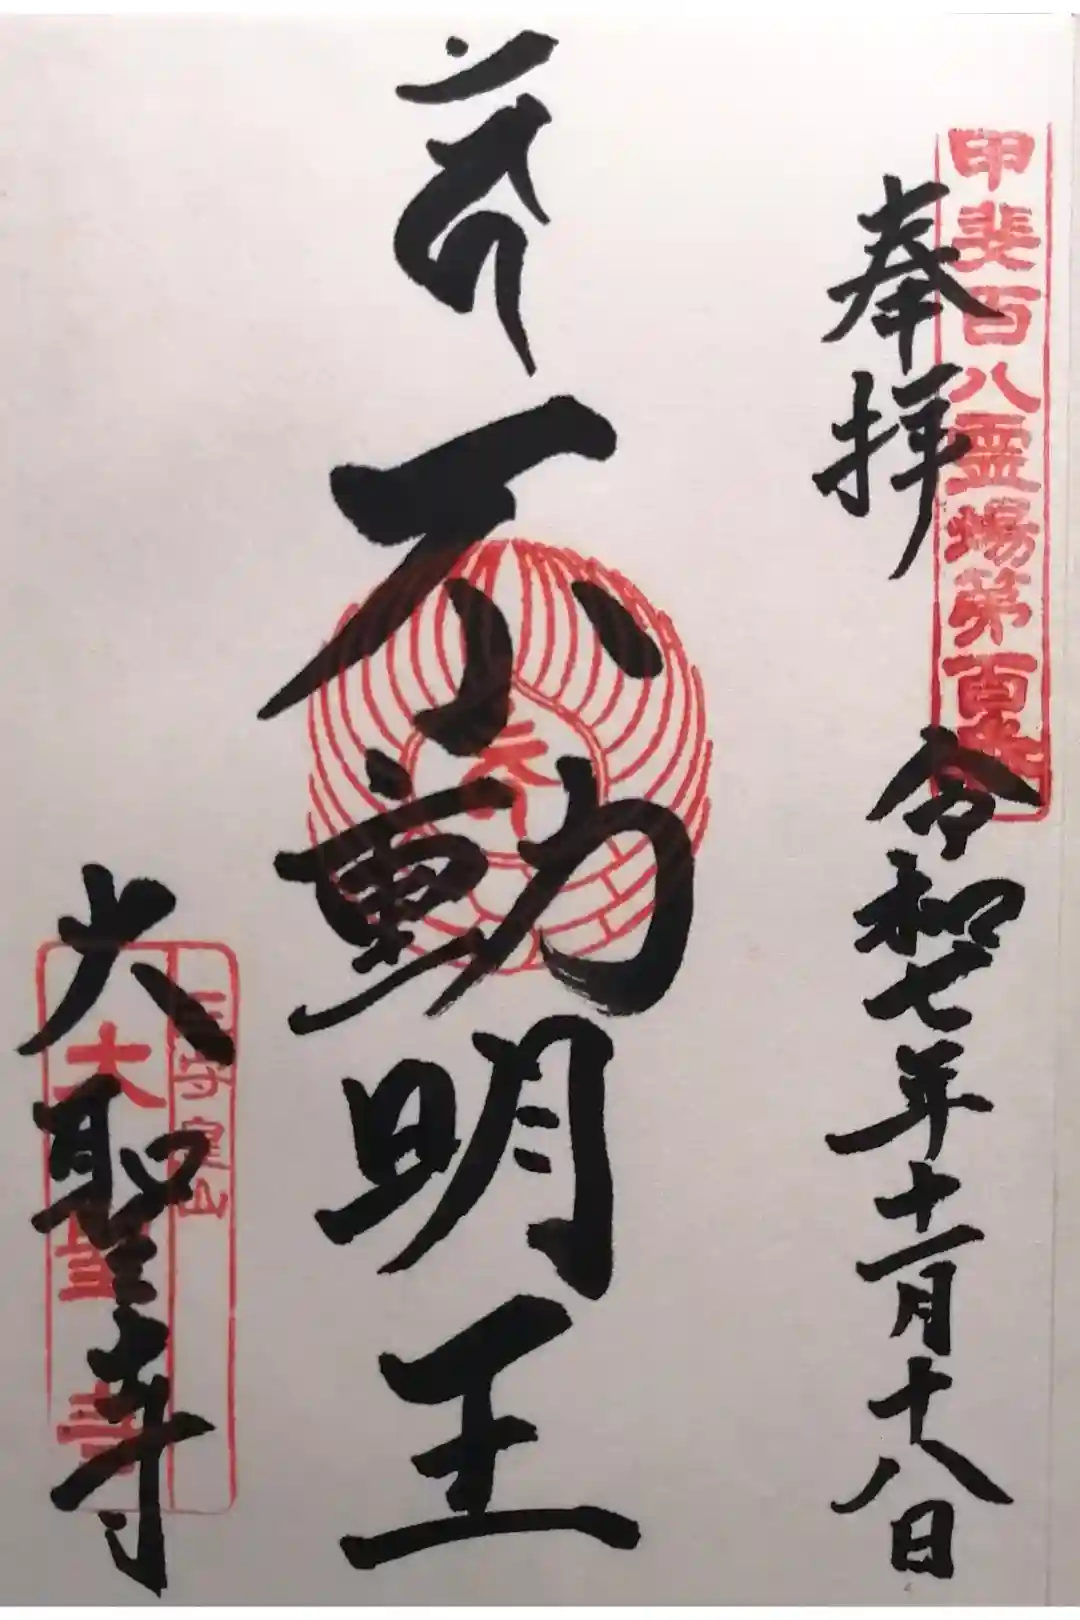 甲斐百八霊場第百番
奉拝 令和七年十一月十八日
不動明王
大聖寺
大聖寺